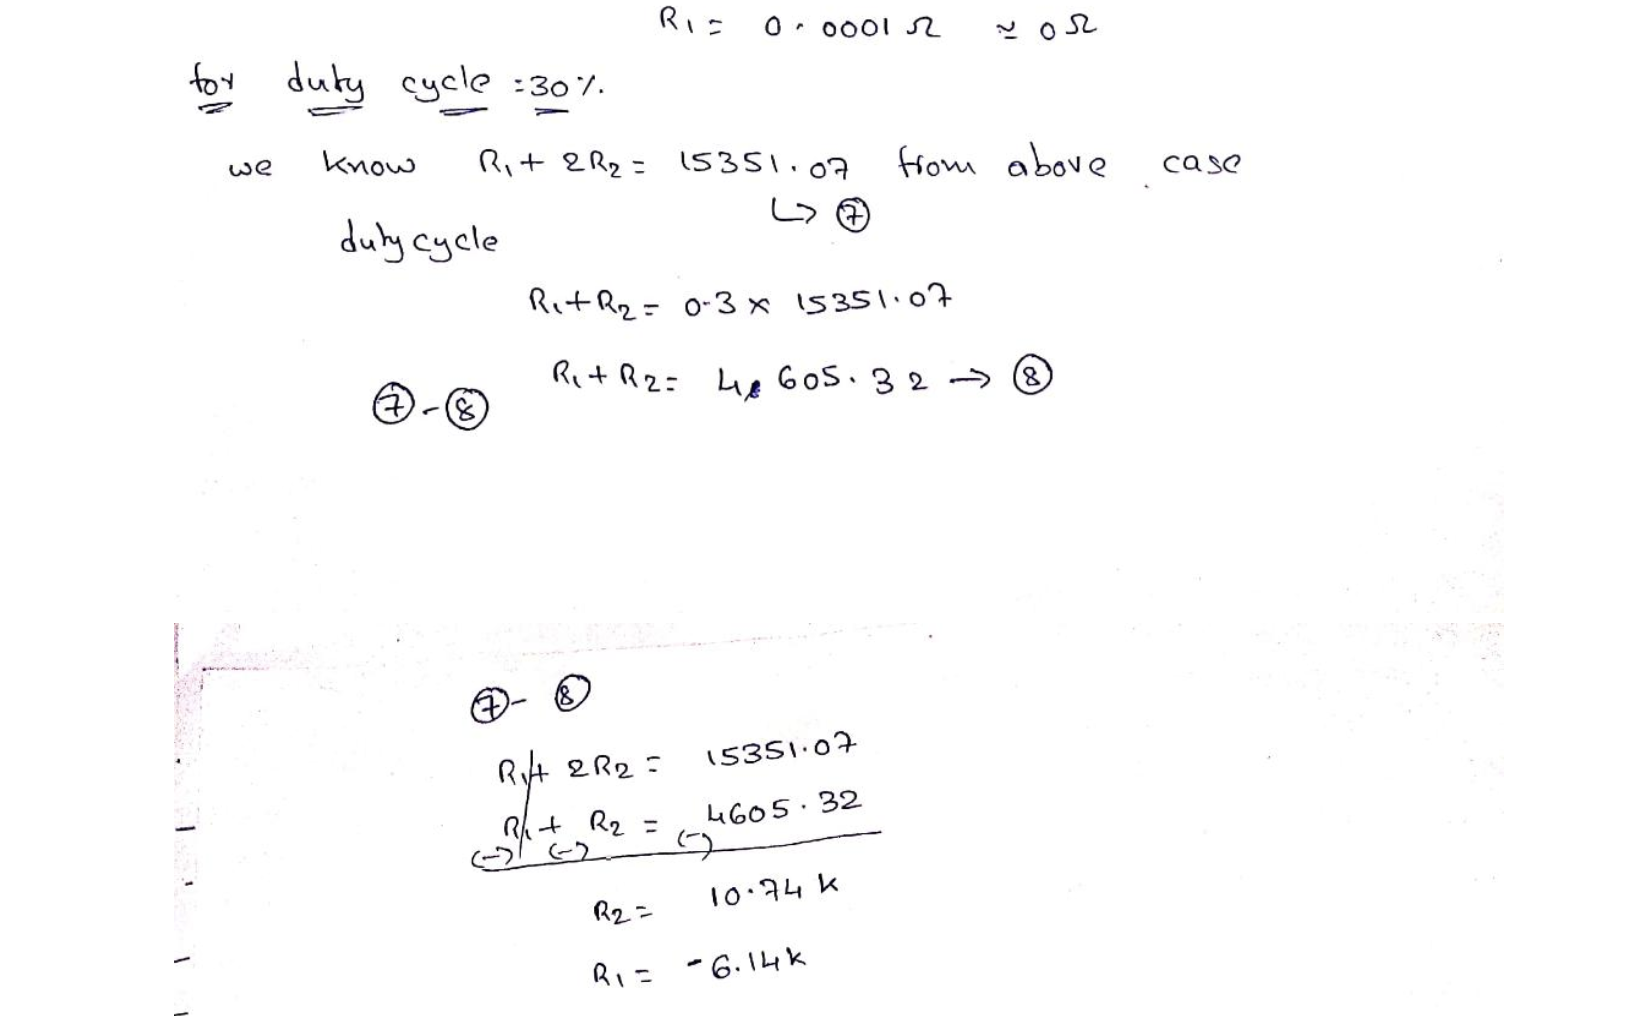 R1 = 0.0001 Ω ≃ 0Ω
for duty cycle = 30%.
we know R1 + 2R2 = 15351.07 from above case
↳ ⑦
duty cycle
R1 + R2 = 0.3 × 15351.07
R1 + R2 = 4605.32 → ⑧
⑦ - ⑧
⑦ - ⑧
R1 + 2R2 = 15351.07
R1 + R2 = 4605.32
(-) (-) (-)
R2 = 10.74 k
R1 = -6.14k